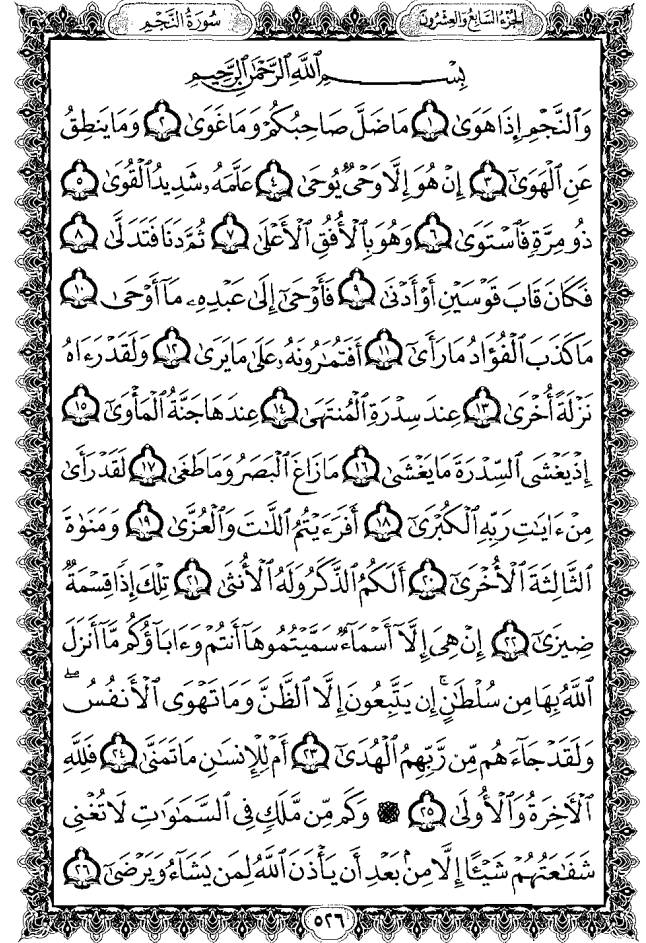 سُورَةُ النَّجْمِ الجُزْءُ السَّابِعُ وَالعِشْرُونَ
بِسْمِ ٱللَّهِ ٱلرَّحْمَٰنِ ٱلرَّحِيمِ
وَٱلنَّجْمِ إِذَا هَوَىٰ ١ مَا ضَلَّ صَاحِبُكُمْ وَمَا غَوَىٰ ٢ وَمَا يَنطِقُ
عَنِ ٱلْهَوَىٰٓ ٣ إِنْ هُوَ إِلَّا وَحْىٌ يُوحَىٰ ٤ عَلَّمَهُۥ شَدِيدُ ٱلْقُوَىٰ ٥
ذُو مِرَّةٍ فَٱسْتَوَىٰ ٦ وَهُوَ بِٱلْأُفُقِ ٱلْأَعْلَىٰ ٧ ثُمَّ دَنَا فَتَدَلَّىٰ ٨
فَكَانَ قَابَ قَوْسَيْنِ أَوْ أَدْنَىٰ ٩ فَأَوْحَىٰٓ إِلَىٰ عَبْدِهِۦ مَآ أَوْحَىٰ ١٠
مَا كَذَبَ ٱلْفُؤَادُ مَا رَأَىٰٓ ١١ أَفَتُمَٰرُونَهُۥ عَلَىٰ مَا يَرَىٰ ١٢ وَلَقَدْ رَءَاهُ
نَزْلَةً أُخْرَىٰ ١٣ عِندَ سِدْرَةِ ٱلْمُنتَهَىٰ ١٤ عِندَهَا جَنَّةُ ٱلْمَأْوَىٰٓ ١٥
إِذْ يَغْشَى ٱلسِّدْرَةَ مَا يَغْشَىٰ ١٦ مَا زَاغَ ٱلْبَصَرُ وَمَا طَغَىٰ ١٧ لَقَدْ رَأَىٰ
مِنْ ءَايَٰتِ رَبِّهِ ٱلْكُبْرَىٰٓ ١٨ أَفَرَءَيْتُمُ ٱللَّٰتَ وَٱلْعُزَّىٰ ١٩ وَمَنَوٰةَ
ٱلثَّالِثَةَ ٱلْأُخْرَىٰٓ ٢٠ أَلَكُمُ ٱلذَّكَرُ وَلَهُ ٱلْأُنثَىٰ ٢١ تِلْكَ إِذًا قِسْمَةٌ
ضِيزَىٰٓ ٢٢ إِنْ هِىَ إِلَّآ أَسْمَآءٌ سَمَّيْتُمُوهَآ أَنتُمْ وَءَابَآؤُكُم مَّآ أَنزَلَ
ٱللَّهُ بِهَا مِن سُلْطَٰنٍ ۚ إِن يَتَّبِعُونَ إِلَّا ٱلظَّنَّ وَمَا تَهْوَى ٱلْأَنفُسُ ۖ
وَلَقَدْ جَآءَهُم مِّن رَّبِّهِمُ ٱلْهُدَىٰٓ ٢٣ أَمْ لِلْإِنسَٰنِ مَا تَمَنَّىٰ ٢٤ فَلِلَّهِ
ٱلْءَاخِرَةُ وَٱلْأُولَىٰ ٢٥ ۞ وَكَم مِّن مَّلَكٍ فِى ٱلسَّمَٰوَٰتِ لَا تُغْنِى
شَفَٰعَتُهُمْ شَيْـًٔا إِلَّا مِنۢ بَعْدِ أَن يَأْذَنَ ٱللَّهُ لِمَن يَشَآءُ وَيَرْضَىٰٓ ٢٦
٥٢٦